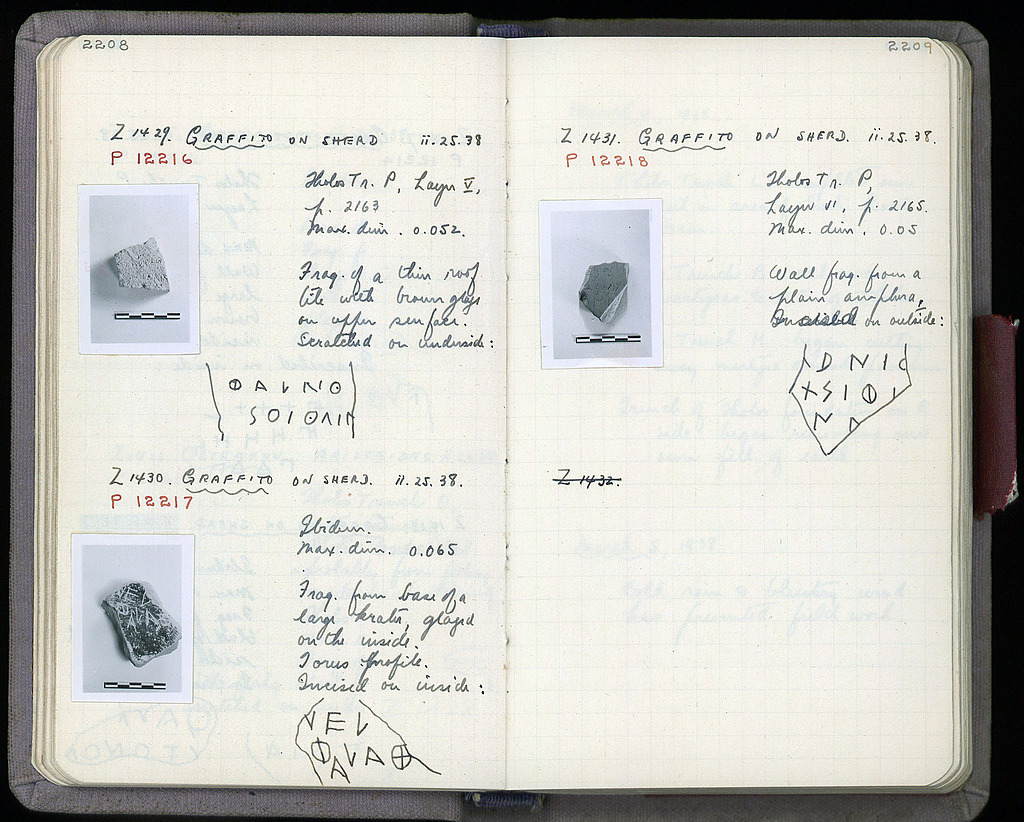 2208
Z 1429. GRAFFITO ON SHERD ii.25.38
P 12216
Tholos Tr. P, Layer V,
p. 2163
Max. dim. 0.052.
Frag. of a thin roof
tile with brown glaze
on upper surface.
Scratched on underside:
Z 1430. GRAFFITO ON SHERD. ii.25.38.
P 12217
Ibidem.
Max. dim. 0.065
Frag. from base of a
large krater, glazed
on the inside.
Torus profile.
Incised on inside:
2209
Z 1431. GRAFFITO ON SHERD. ii.25.38.
P 12218
Tholos Tr. P,
Layer VI, p. 2165.
Max. dim. 0.05
Wall frag. from a
plain amphora,
Incised on outside:
Z 1432.